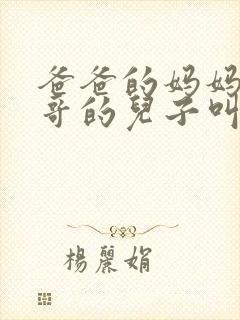 爸爸的妈妈
哥的兒子叫
楊麗娟